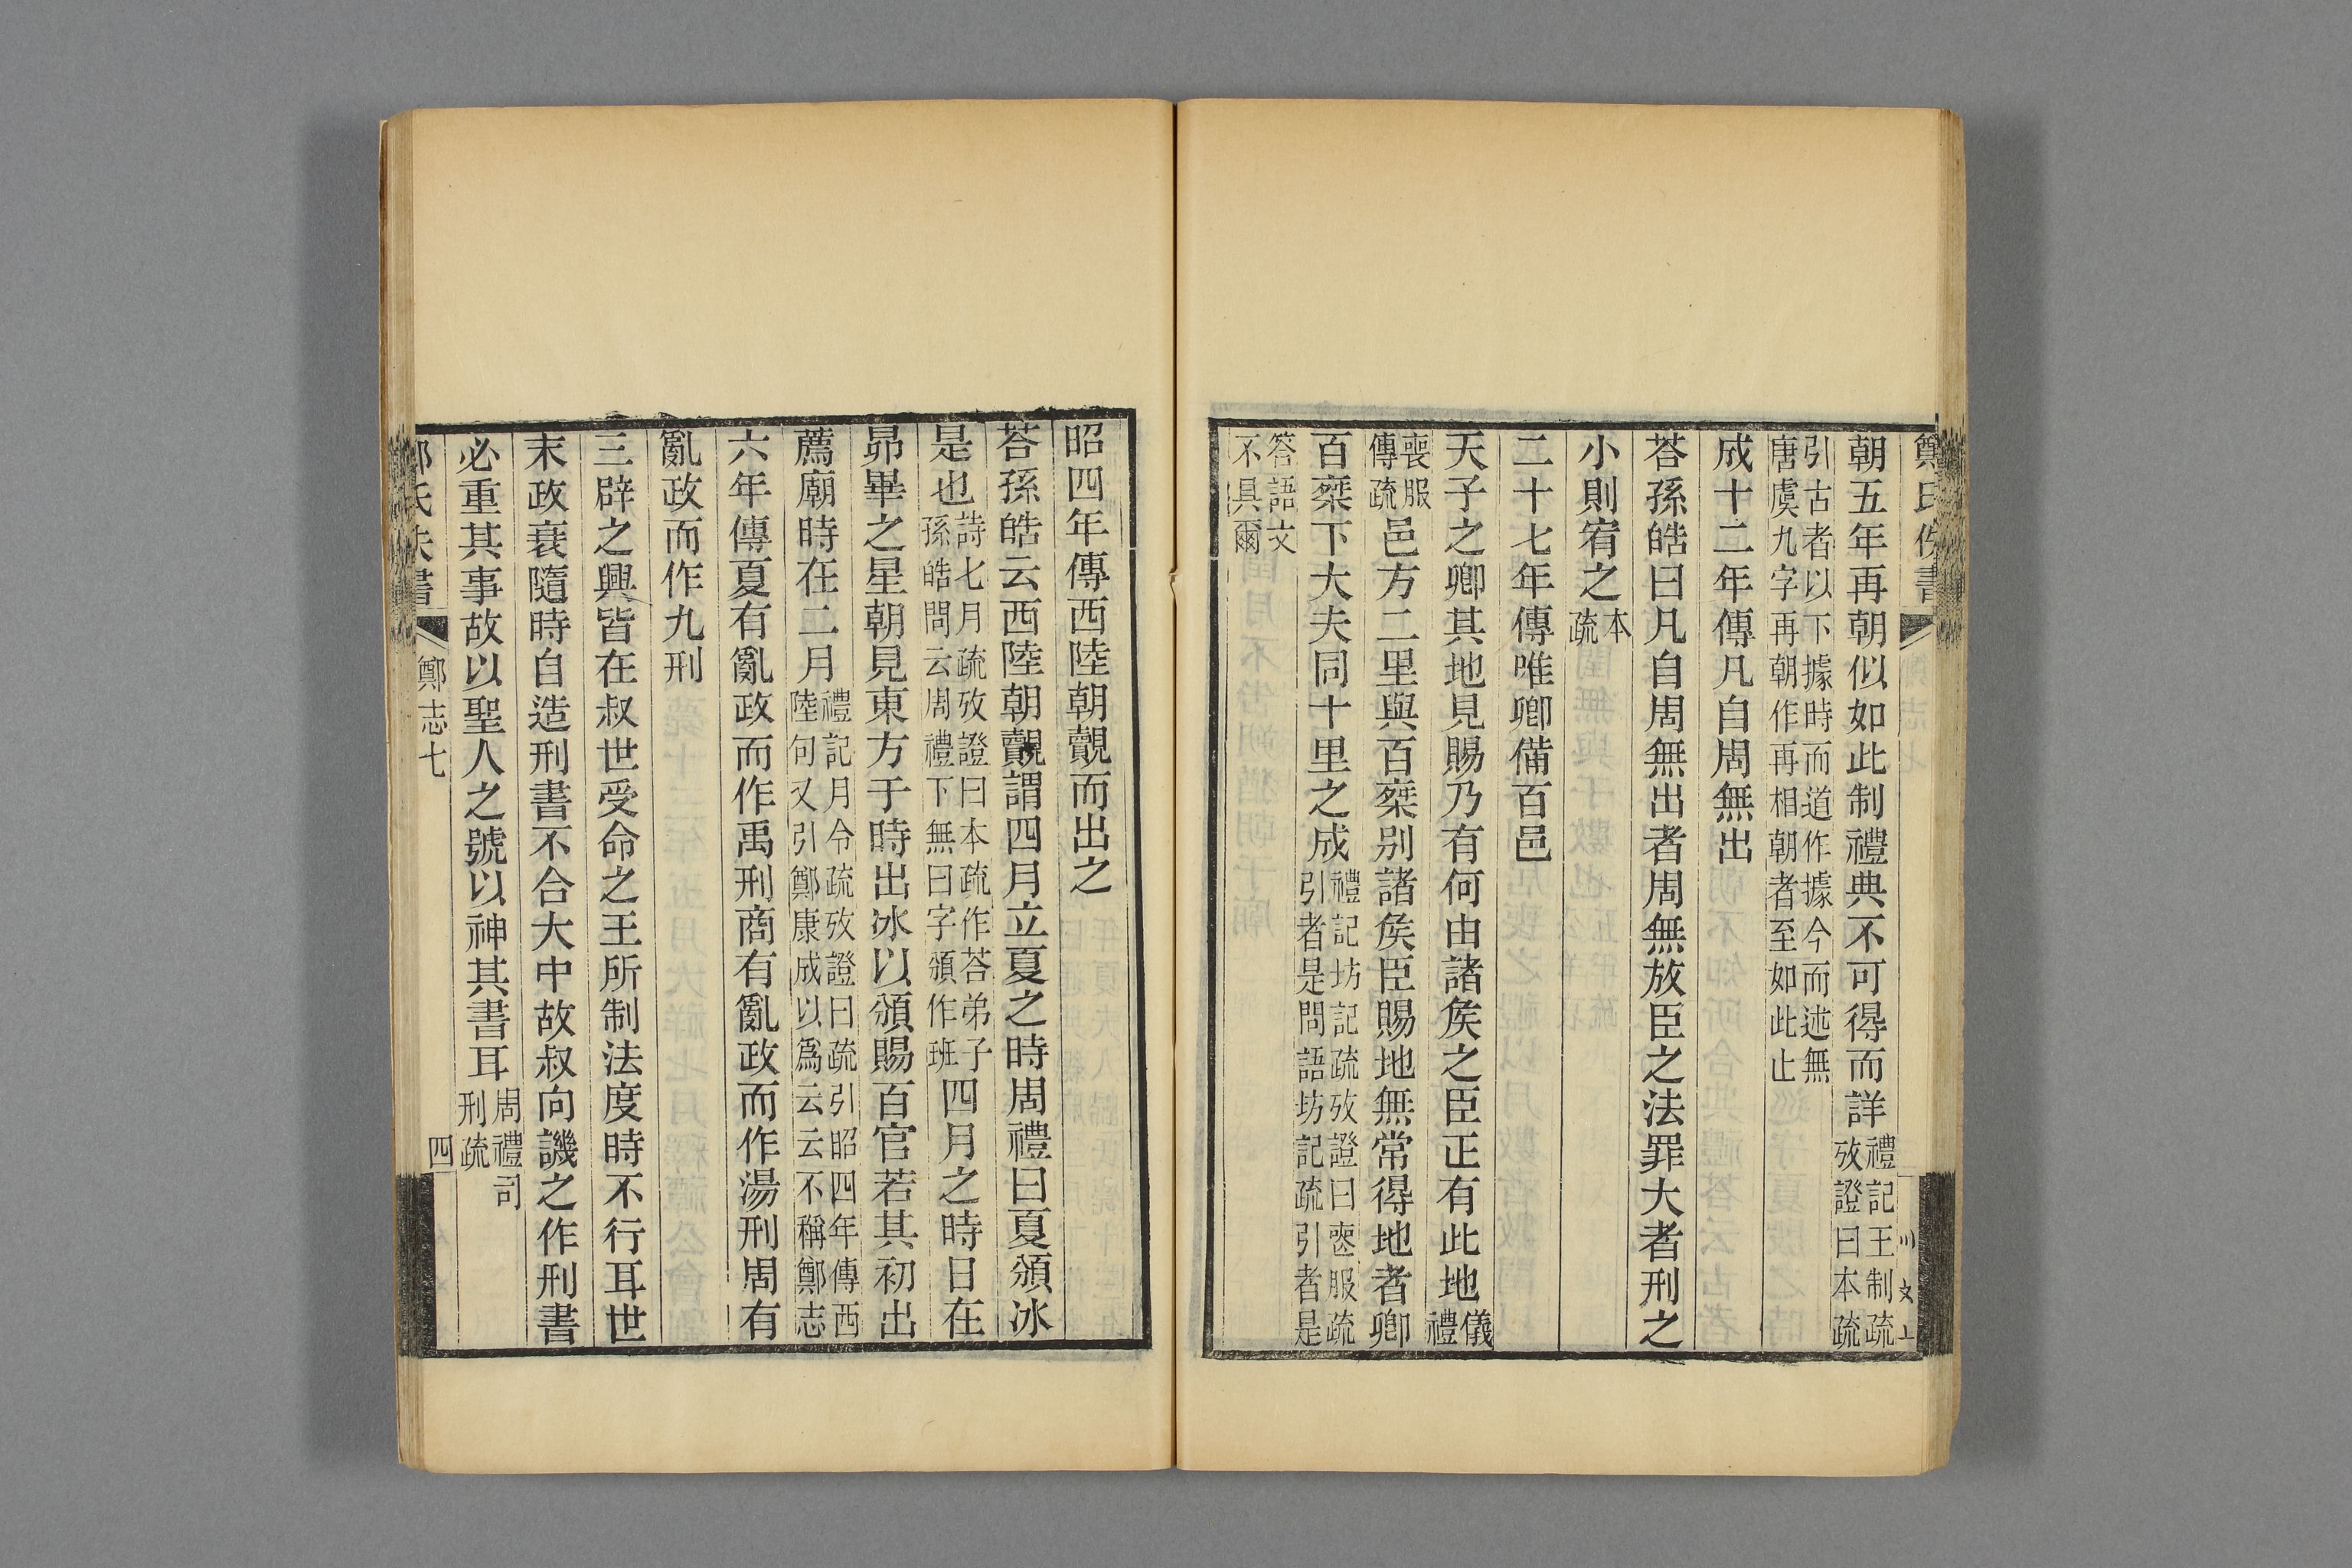 朝五年再朝似如此制禮典不可得而詳禮記王制疏攷證曰本疏
引古者以下據時而道作據今而述無唐虞九字再朝作再相朝者至如此止
成十二年傳凡自周無出
荅孫皓曰凡自周無出者周無放臣之法罪大者刑之
小則宥之本疏
二十七年傳唯卿備百邑
天子之卿其地見賜乃有何由諸矦之臣正有此地儀禮
喪服傳疏邑方二里與百椉别諸矦臣賜地無常得地者卿
百椉下大夫同十里之成禮記坊記疏攷證曰喪服疏引者是問語坊記疏引者是
答語文不具爾
昭四年傳西陸朝覿而出之
荅孫皓云西陸朝覿謂四月立夏之時周禮曰夏頒冰
是也詩七月疏攷證曰本疏作荅弟子孫皓問云周禮下無曰字頒作班四月之時日在
昴畢之星朝見東方于時出冰以頒賜百官若其初出
薦廟時在二月禮記月令疏攷證曰疏引昭四年傳西陸句又引鄭康成以爲云云不稱鄭志
六年傳夏有亂政而作禹刑商有亂政而作湯刑周有
亂政而作九刑
三辟之興皆在叔世受命之王所制法度時不行耳世
末政衰隨時自造刑書不合大中故叔向譏之作刑書
必重其事故以聖人之號以神其書耳周禮司刑疏
鄭志七
四